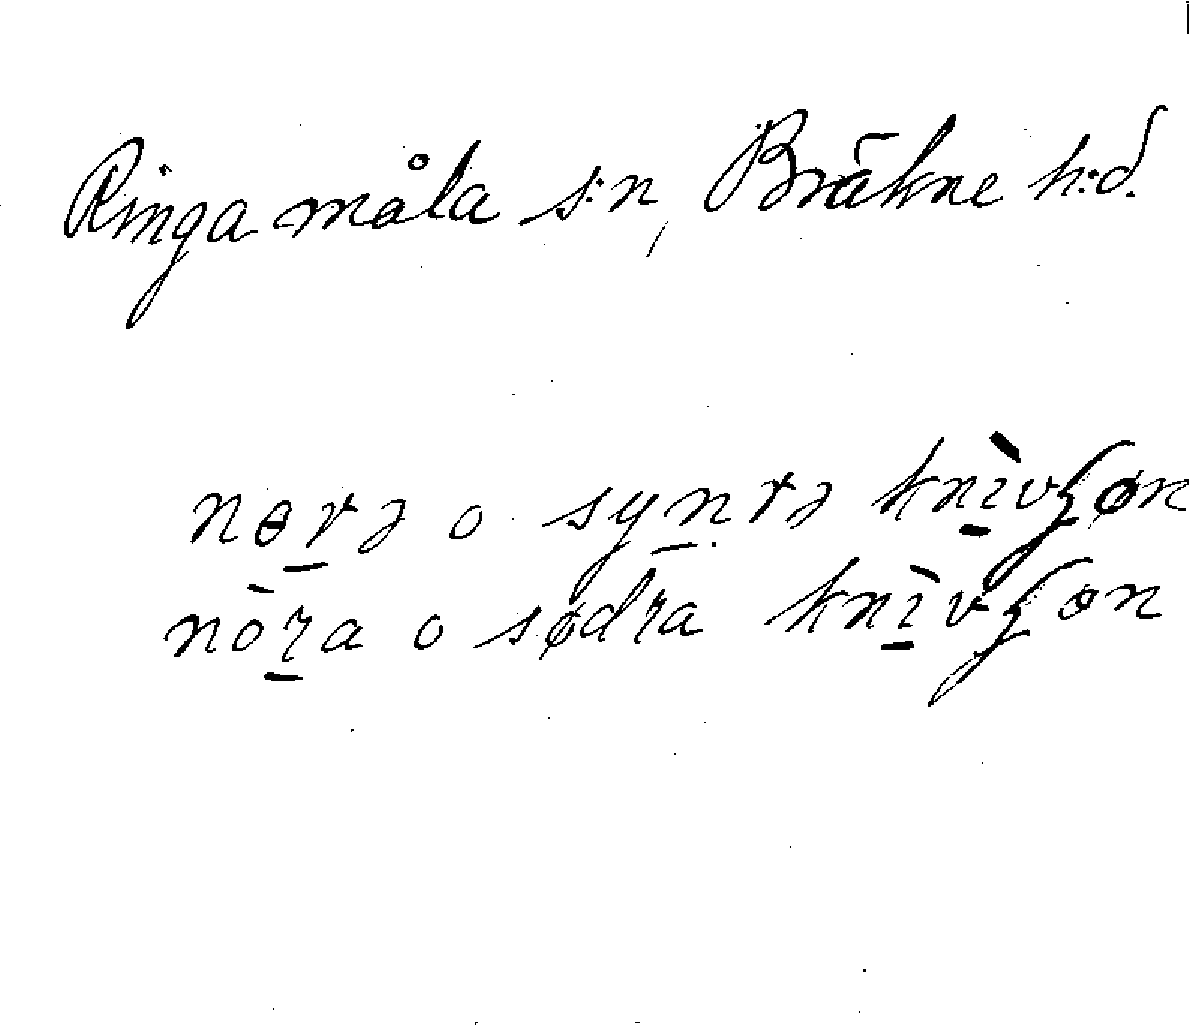 Ringamåla s:n, Bräkne h:d.
nɵrə o syntə knìvʒøn
nòra o sødra knìvʒɵn